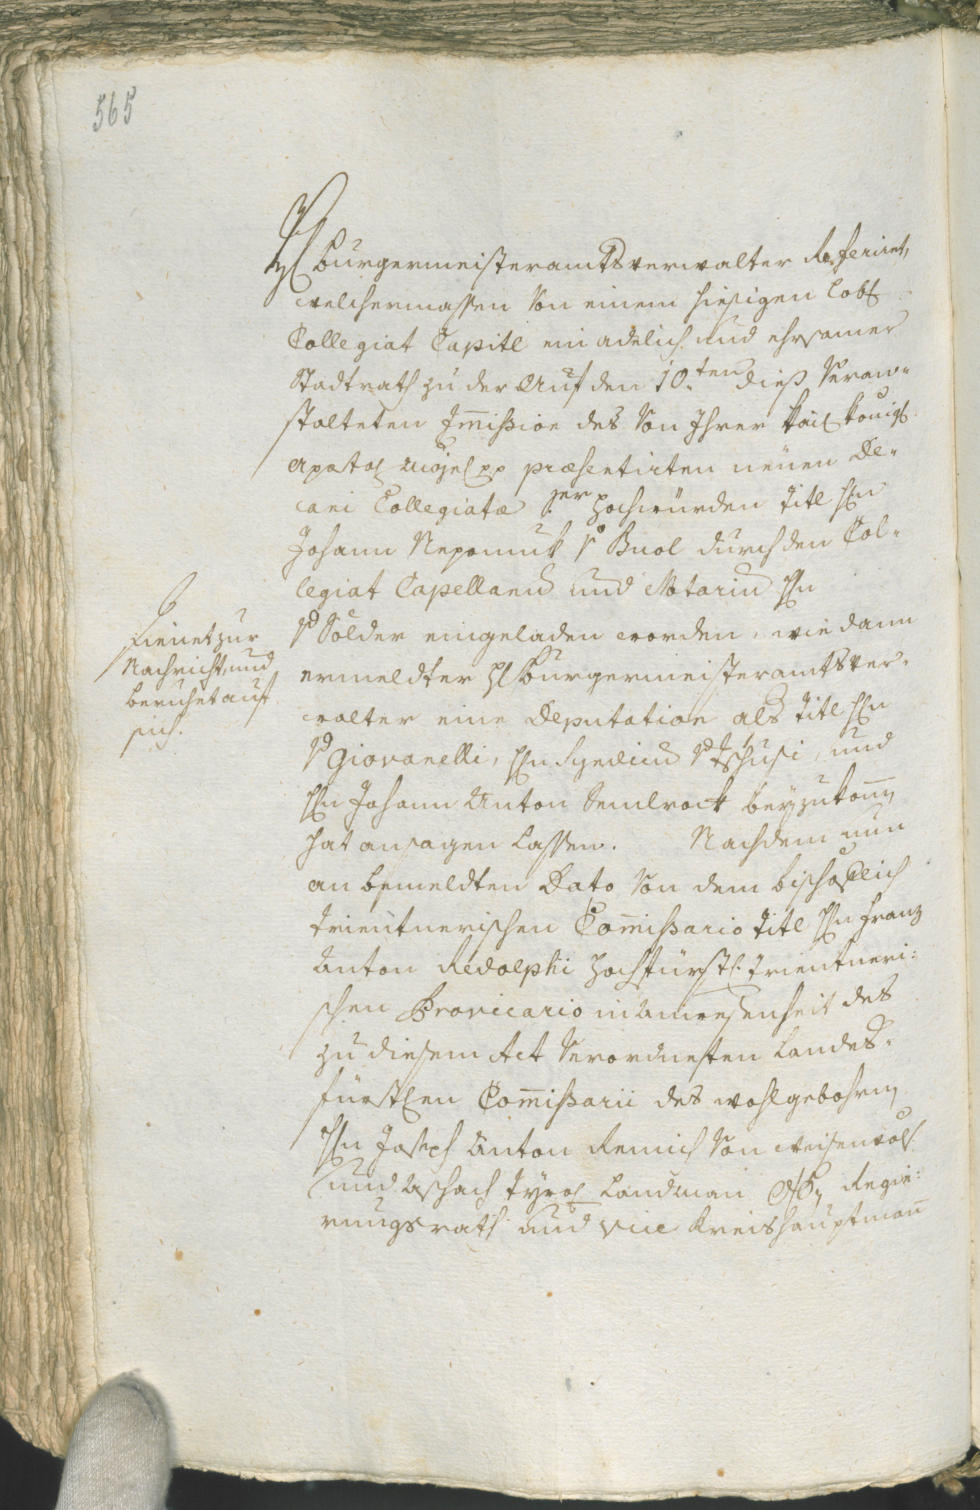 565
H: Burgermeisteramtsverwalter Referiret,
welchermassen von einem hiesigen lobl:
Collegiat Capitl ein adelich und ehrsamer
Stadtrath zu der auf den 10.ten dieß veran-
stalteten Immission des von Ihrer kais: königl:
apostol: Majest: pp præsentirten neüen De-
cani Collegiatæ Sr. Hochwürden Titl Hn
Johann Nepomuk v Buol durch den Col-
legiat Capellanum und Notarium Hn
v Sölder eingeladen worden, wie dann
ermeldter H: Burgermeisteramtsver-
walter eine Deputation als Titl Hn
v Giovanelli, Hn Syndicum v Tschusi, und
Hn Johann Anton Semlrock beyzukommen
hat ansagen lassen. Nachdem nun
an bemeldten Dato von dem bischöflich
Trientnerischen Commissario Titl Hn Franz
Anton Redolphi Hochfürstl: Trientneri:
schen Provicario in Anwesenheit des
zu diesem Act verordneten Landes-
fürstlen Commissarii des wohlgebohrnen
Hn Joseph Anton Remich von Weisenvols
und Aschach Tyrol: Landman Regie:
rungsrath und vice Kreishauptmann
Dienet zur
Nachricht, und
beruhet auf
sich.